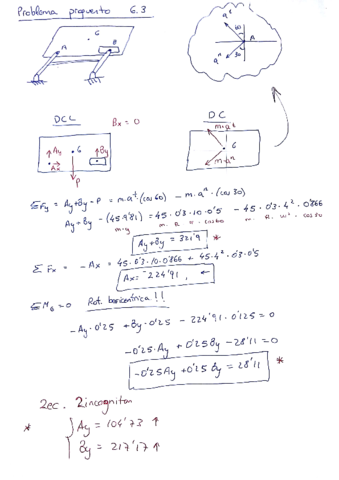 Problema propuesto 6.3
G
A
B
a^t
60
A
a^n
30
DCL
Bx = 0
DC
m·a^t
Ay
G
By
Ax
P
G
m·a^n
ΣFy = Ay+By-P = m·a^t·(cos 60) - m·a^n·(cos 30)
Ay+By - (45·9'81) = 45·0'3·10·0'5 - 45·0'3·4²·0'866
m·g
Ay+By = 321'9 *
ΣFx = -Ax = 45·0'3·10·0'866 + 45·4²·0'3·0'5
Ax = -224'91
ΣM_G = 0 Rot. baricéntrica!!
-Ay·0'25 + By·0'25 - 224'91·0'125 = 0
-0'25·Ay + 0'25By - 28'11 = 0
-0'25Ay + 0'25By = 28'11 *
2ec. 2incognitas
* Ay = 104'73 ↑
By = 217'17 ↑